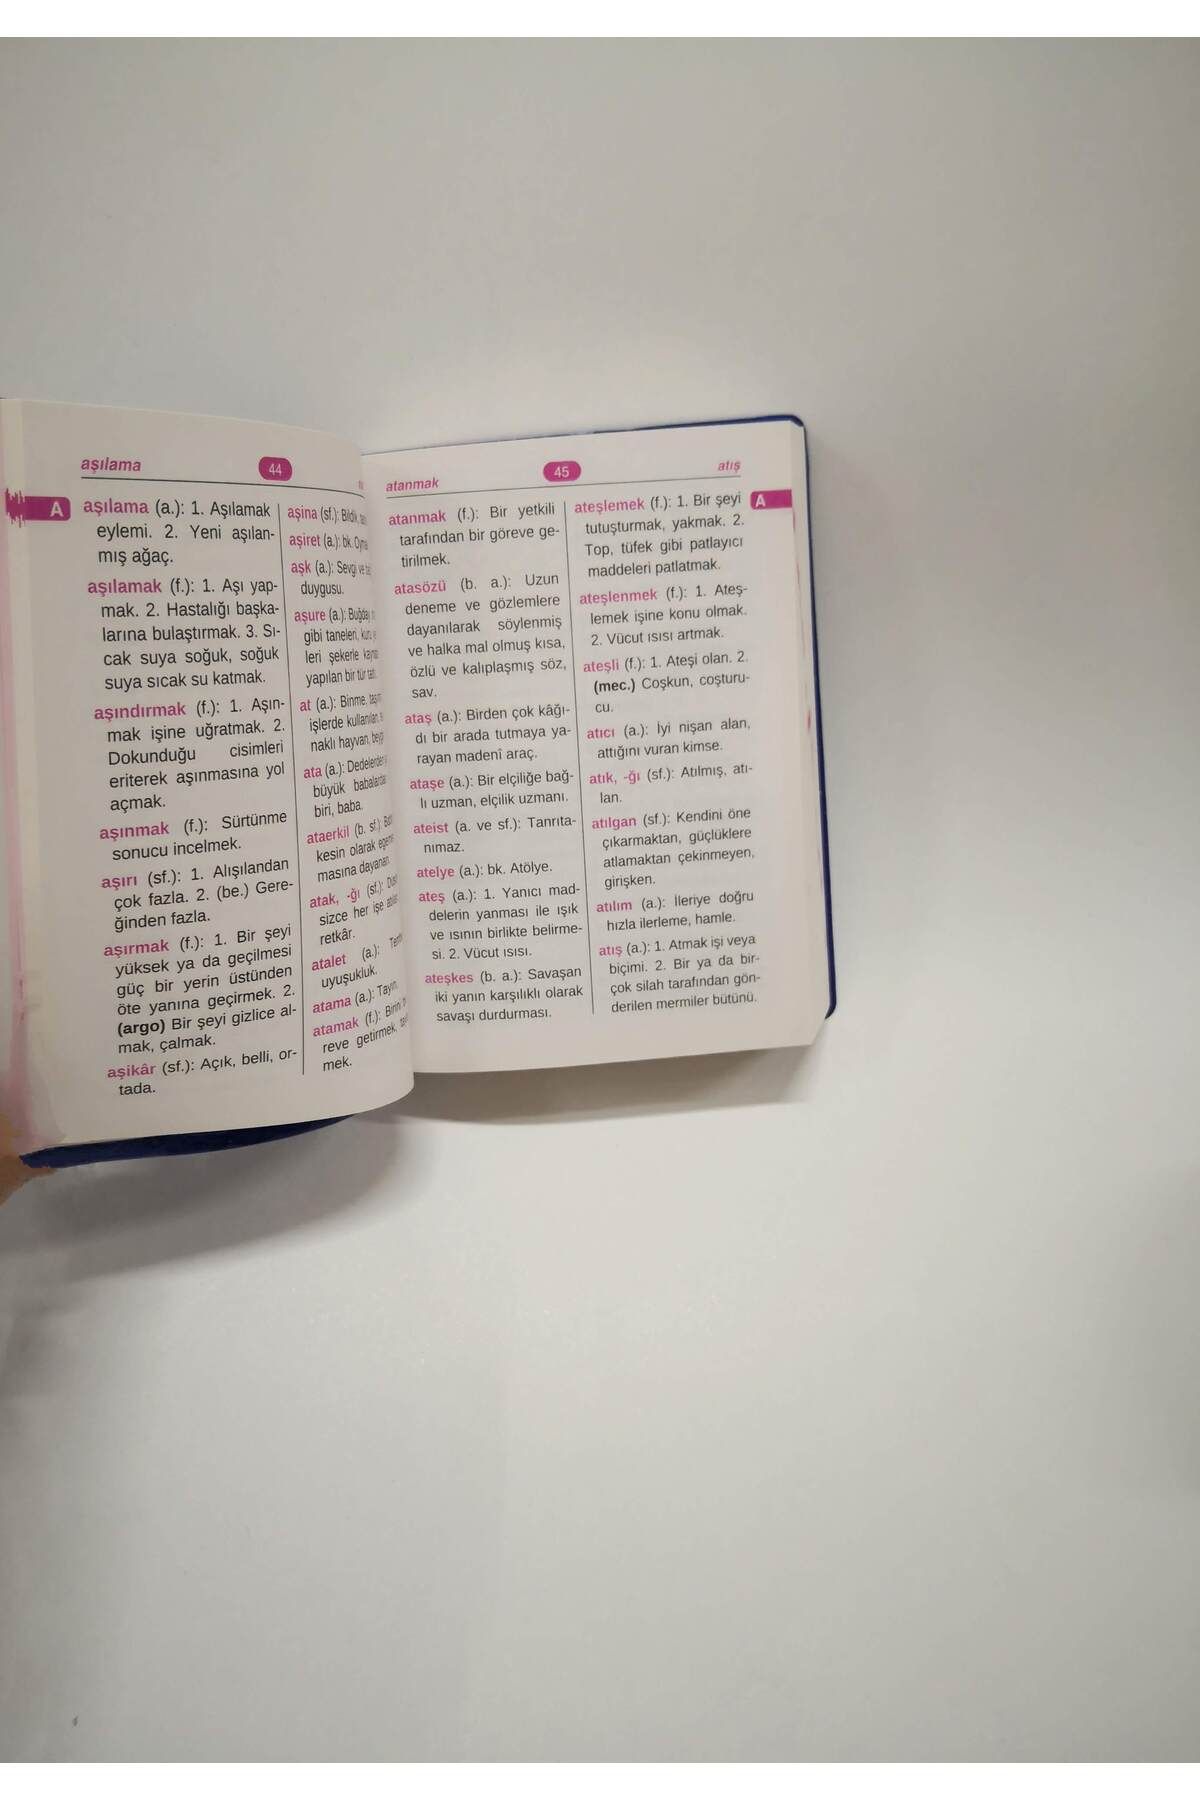 aşılama
44
A
aşılama (a.): 1. Aşılamak
eylemi. 2. Yeni aşılan-
mış ağaç.
aşılamak (f.): 1. Aşı yap-
mak. 2. Hastalığı başka-
larına bulaştırmak. 3. Sı-
cak suya soğuk, soğuk
suya sıcak su katmak.
aşındırmak (f.): 1. Aşın-
mak işine uğratmak. 2.
Dokunduğu cisimleri
eriterek aşınmasına yol
açmak.
aşınmak (f.): Sürtünme
sonucu incelmek.
aşırı (sf.): 1. Alışılandan
çok fazla. 2. (be.) Gere-
ğinden fazla.
aşırmak (f.): 1. Bir şeyi
yüksek ya da geçilmesi
güç bir yerin üstünden
öte yanına geçirmek. 2.
(argo) Bir şeyi gizlice al-
mak, çalmak.
aşikâr (sf.): Açık, belli, or-
tada.
aşina (sf.): Bildik,
aşiret (a.): bk.
aşk (a.): Sevgi ve
duygusu.
aşure (a.): Buğday
gibi taneleri, kuru
leri şekerle
yapılan bir tür tatlı.
at (a.): Binme,
işlerde kullanılan,
naklı hayvan,
ata (a.): Dedelerden
büyük babalardan
biri, baba.
ataerkil (b. sf.):
kesin olarak
masına dayanan.
atak, -ğı (sf.):
sizce her işe
retkâr.
atalet (a.):
uyuşukluk.
atama (a.): Tayin.
atamak (f.): Birini
reve getirmek,
mek.
atanmak
45
atış
atanmak (f.): Bir yetkili
tarafından bir göreve ge-
tirilmek.
atasözü (b. a.): Uzun
deneme ve gözlemlere
dayanılarak söylenmiş
ve halka mal olmuş kısa,
özlü ve kalıplaşmış söz,
sav.
ataş (a.): Birden çok kâğı-
dı bir arada tutmaya ya-
rayan madenî araç.
ataşe (a.): Bir elçiliğe bağ-
lı uzman, elçilik uzmanı.
ateist (a. ve sf.): Tanrıta-
nımaz.
atelye (a.): bk. Atölye.
ateş (a.): 1. Yanıcı mad-
delerin yanması ile ışık
ve ısının birlikte belirme-
si. 2. Vücut ısısı.
ateşkes (b. a.): Savaşan
iki yanın karşılıklı olarak
savaşı durdurması.
ateşlemek (f.): 1. Bir şeyi
tutuşturmak, yakmak. 2.
Top, tüfek gibi patlayıcı
maddeleri patlatmak.
ateşlenmek (f.): 1. Ateş-
lemek işine konu olmak.
2. Vücut ısısı artmak.
ateşli (f.): 1. Ateşi olan. 2.
(mec.) Coşkun, coşturu-
cu.
atıcı (a.): İyi nişan alan,
attığını vuran kimse.
atık, -ğı (sf.): Atılmış, atı-
lan.
atılgan (sf.): Kendini öne
çıkarmaktan, güçlüklere
atlamaktan çekinmeyen,
girişken.
atılım (a.): İleriye doğru
hızla ilerleme, hamle.
atış (a.): 1. Atmak işi veya
biçimi. 2. Bir ya da bir-
çok silah tarafından gön-
derilen mermiler bütünü.
A